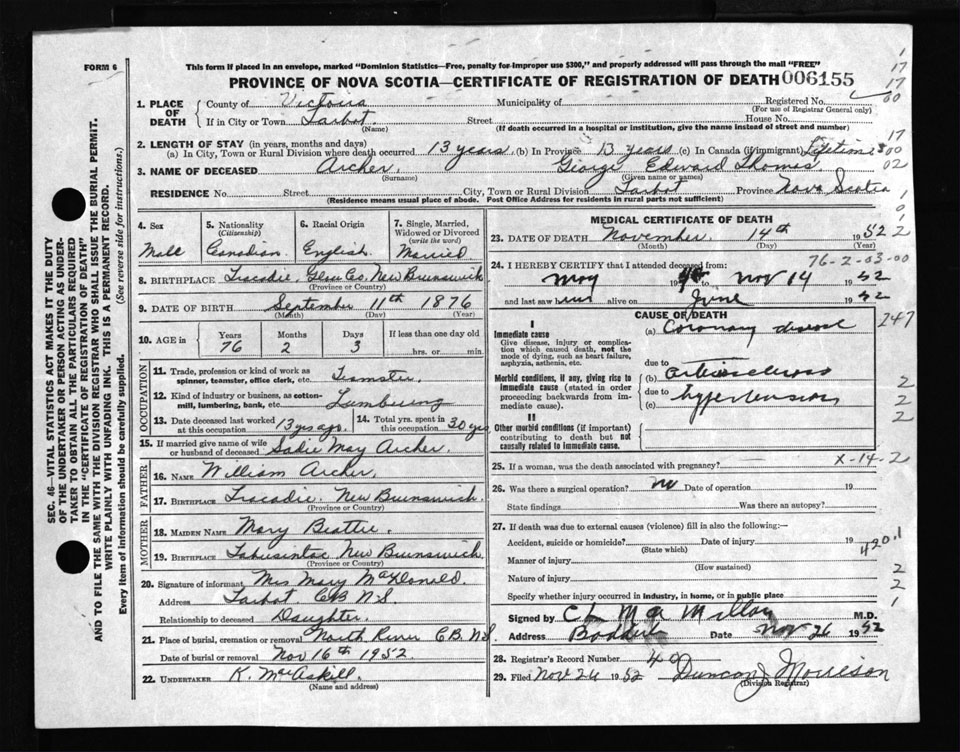 FORM 6
This form if placed in an envelope, marked "Dominion Statistics—Free, penalty for improper use $300," and properly addressed will pass through the mail "FREE"
PROVINCE OF NOVA SCOTIA—CERTIFICATE OF REGISTRATION OF DEATH 006155
1. PLACE OF DEATH
County of Victoria Municipality of Registered No.
(For use of Registrar General only)
If in City or Town Tarbot Street House No.
(Name) (If death occurred in a hospital or institution, give the name instead of street and number)
2. LENGTH OF STAY (in years, months and days)
(a) In City, Town or Rural Division where death occurred 13 years (b) In Province 13 years (c) In Canada (if immigrant) Lifetime
3. NAME OF DECEASED Archer George Edward Thomas
(Surname) (Given name or names)
RESIDENCE No. Street City, Town or Rural Division Tarbot Province Nova Scotia
(Residence means usual place of abode. Post Office Address for residents in rural parts not sufficient)
4. Sex Male
5. Nationality (Citizenship) Canadian
6. Racial Origin English
7. Single, Married, Widowed or Divorced (write the word) Married
8. BIRTHPLACE Tracadie, Glou Co, New Brunswick
(Province or Country)
9. DATE OF BIRTH September 11th 1876
(Month) (Day) (Year)
10. AGE in Years 76 Months 2 Days 3 If less than one day old
hrs. or min.
OCCUPATION
11. Trade, profession or kind of work as spinner, teamster, office clerk, etc. Teamster
12. Kind of industry or business, as cotton-mill, lumbering, bank, etc. Lumbering
13. Date deceased last worked at this occupation 13 yrs ago.
14. Total yrs. spent in this occupation 30 yrs
15. If married give name of wife or husband of deceased Sadie May Archer
FATHER
16. NAME William Archer
17. BIRTHPLACE Tracadie New Brunswick
(Province or Country)
MOTHER
18. MAIDEN NAME Mary Beattie
19. BIRTHPLACE Tabusintac New Brunswick
(Province or Country)
20. Signature of informant Mrs Mary MacDonald
Address Tarbot CB NS
Relationship to deceased Daughter
21. Place of burial, cremation or removal North River C.B. N.S.
Date of burial or removal Nov 16th 1952
22. UNDERTAKER K. MacAskill
(Name and address)
MEDICAL CERTIFICATE OF DEATH
23. DATE OF DEATH November 14th 1952
(Month) (Day) (Year)
76-2-03-00
24. I HEREBY CERTIFY that I attended deceased from
May 19 to Nov 14 1952
and last saw him alive on June 1952
CAUSE OF DEATH
Immediate cause
Give disease, injury or complication which caused death, not the mode of dying, such as heart failure, asphyxia, asthenia, etc.
(a) Coronary disease
due to
Morbid conditions, if any, giving rise to immediate cause (stated in order proceeding backwards from immediate cause).
(b) Arteriosclerosis
due to
(c) Hypertension
Other morbid conditions (if important) contributing to death but not causally related to immediate cause.
25. If a woman, was the death associated with pregnancy? X-14-2
26. Was there a surgical operation? no Date of operation 19
State findings Was there an autopsy?
27. If death was due to external causes (violence) fill in also the following:—
Accident, suicide or homicide? Date of injury 19
(State which)
Manner of injury
(How sustained)
Nature of injury
Specify whether injury occurred in industry, in home, or in public place
Signed by C L MacMillan M.D.
Address Baddeck Date Nov 26 1952
28. Registrar's Record Number 40
29. Filed Nov 26 1952 Duncan J Morrison
(Division Registrar)
SEC. 46—VITAL STATISTICS ACT MAKES IT THE DUTY
OF THE UNDERTAKER OR PERSON ACTING AS UNDER-
TAKER TO OBTAIN ALL THE PARTICULARS REQUIRED
IN THE "CERTIFICATE OF REGISTRATION OF DEATH"
AND TO FILE THE SAME WITH THE DIVISION REGISTRAR WHO SHALL ISSUE THE BURIAL PERMIT.
WRITE PLAINLY WITH UNFADING INK. THIS IS A PERMANENT RECORD.
Every item of information should be carefully supplied. (See reverse side for instructions.)
1
17
17
00
17
00
02
1
0
1
2
247
2
2
2
420.1
2
2
1